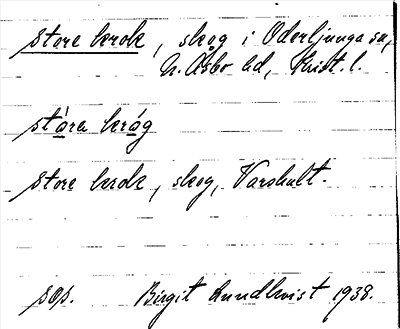 store krok, skog i Oderljunga sn,
N. Åsbo hd, Krist. l.
stɑ̀ra kråg
store krok, skog, Varshult.
sop. Birgit Lundkvist 1938.